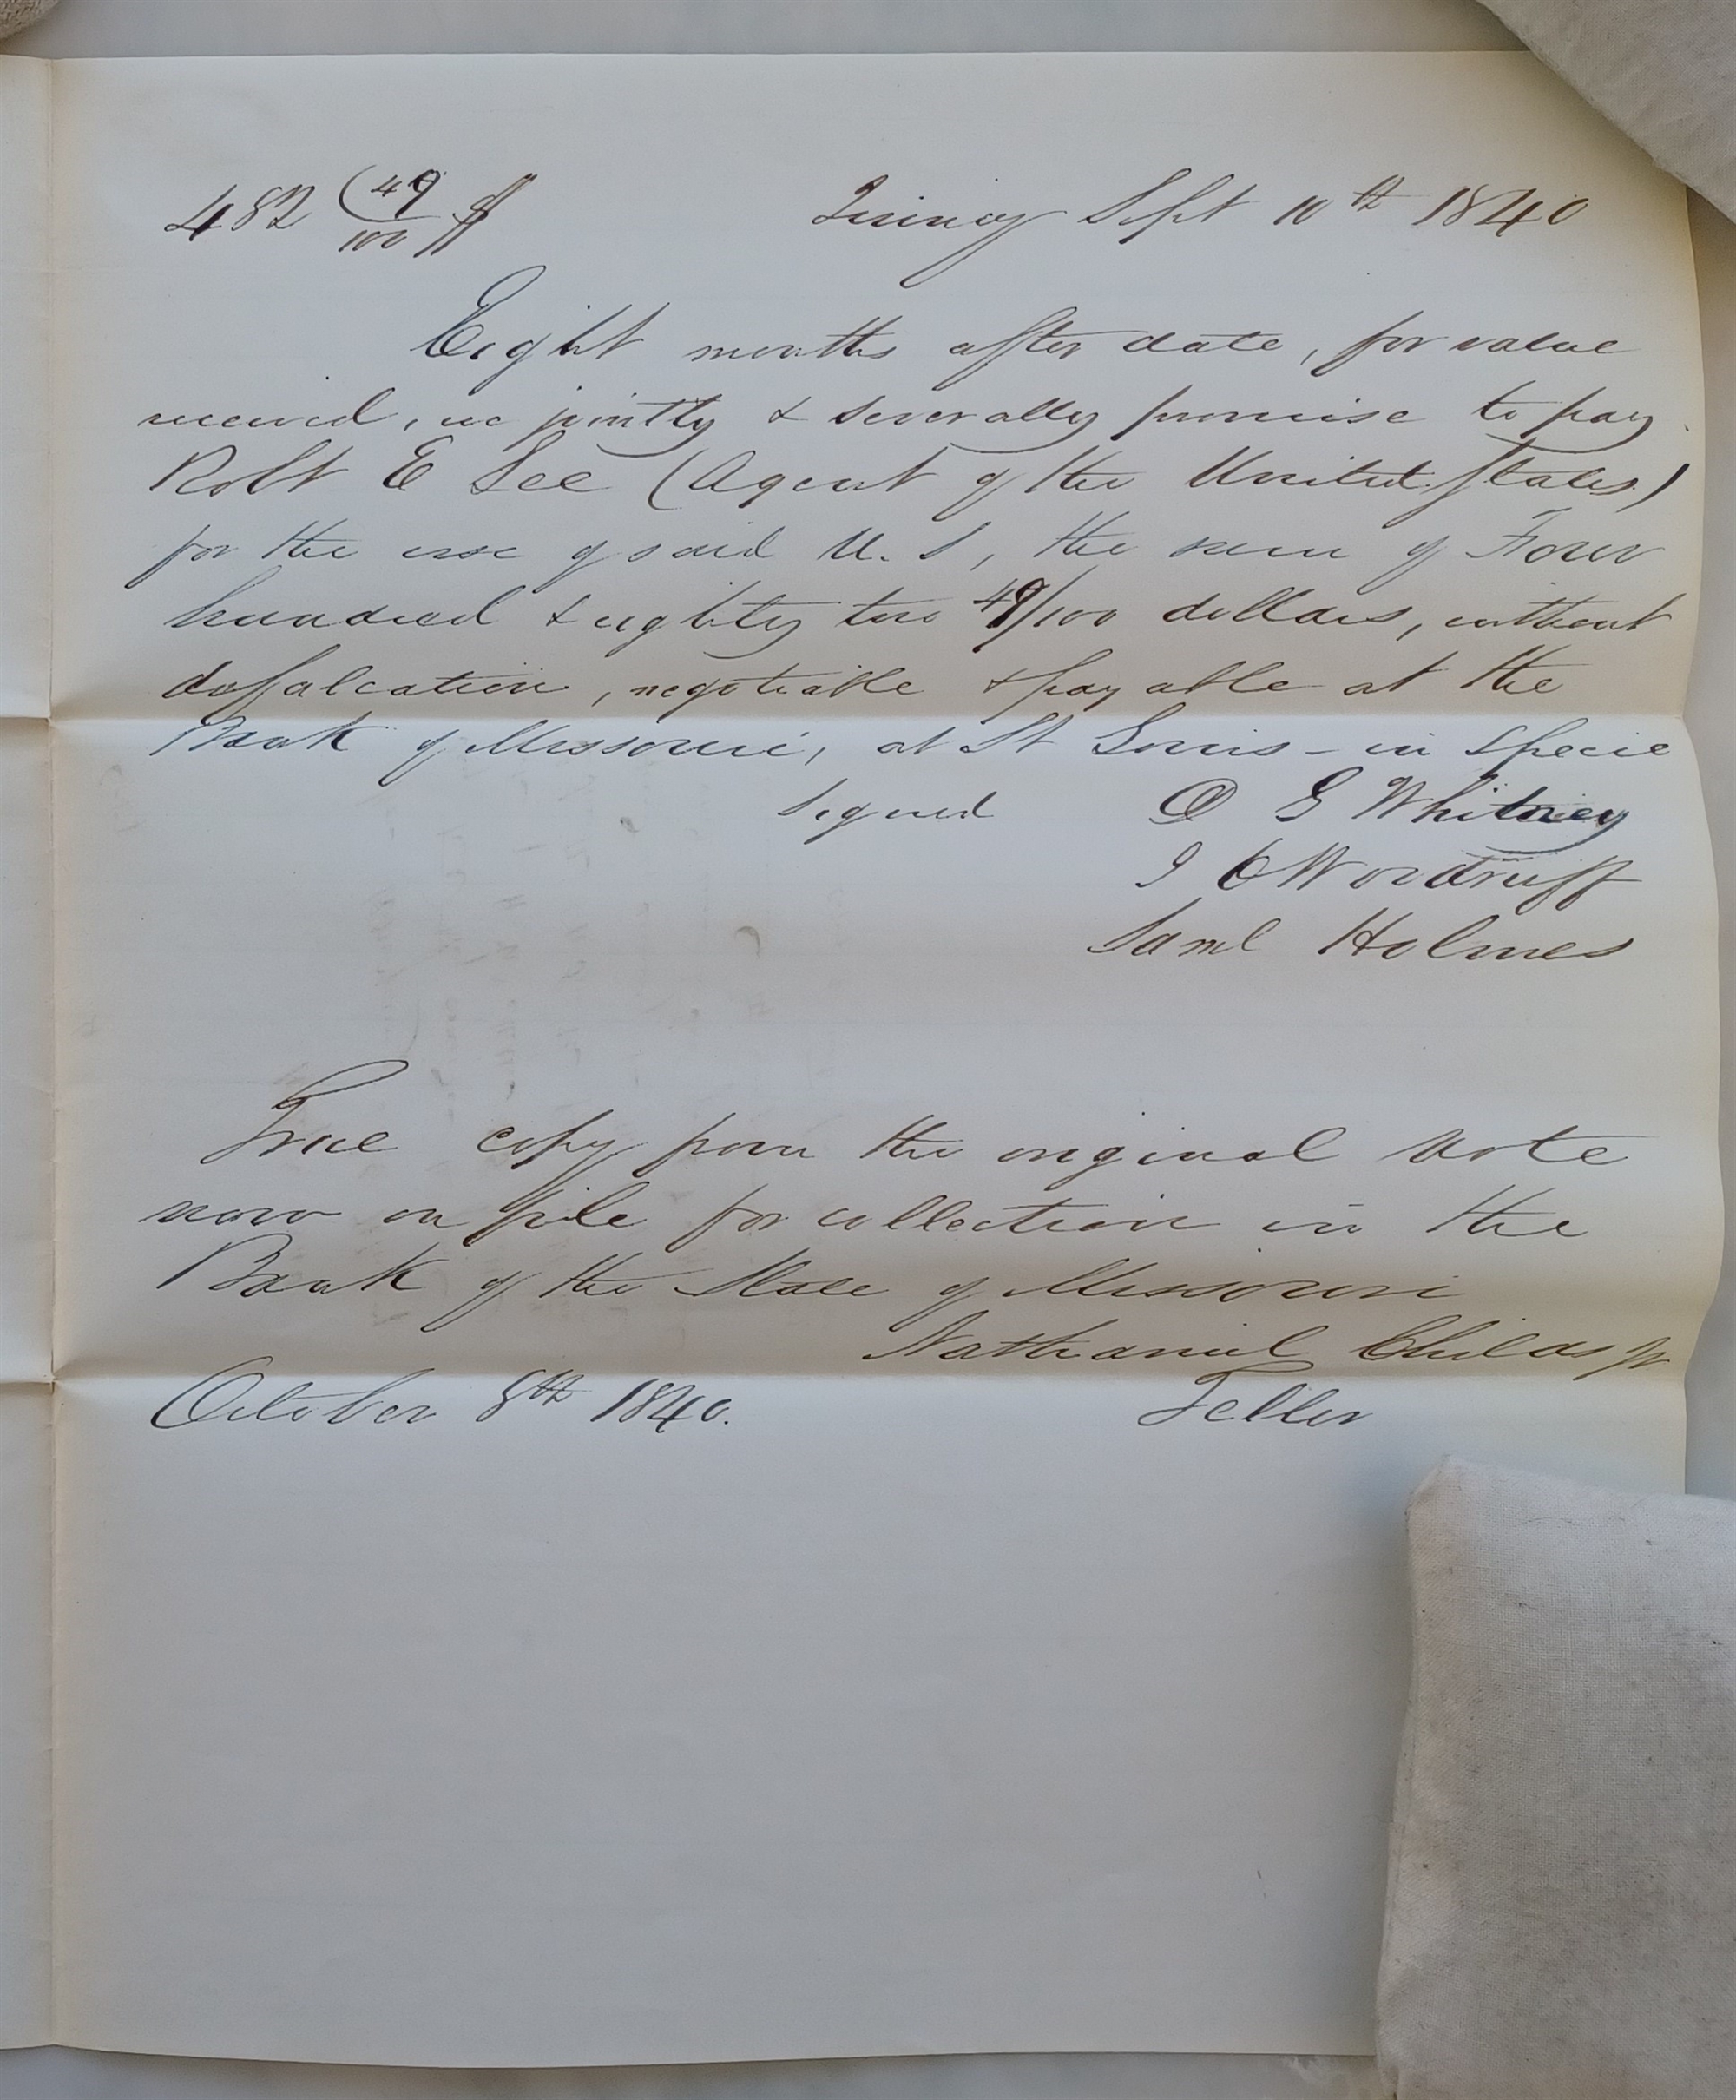 482 49/100 $ Quincy Sept 10th 1840
Eight months after date, for value
received, we jointly & severally promise to pay
Robt E Lee (Agent of the United States)
for the use of said U. S, the sum of Four
hundred & eighty two 49/100 dollars, without
defalcation, negotiable & payable at the
Bank of Missouri, at St Louis - in specie
Signed O G Whitney
I C Woodruff
Saml Holmes
True copy from the original note
now on file for collection in the
Bank of the State of Missouri
Nathaniel Childs jr
October 8th 1840. Teller